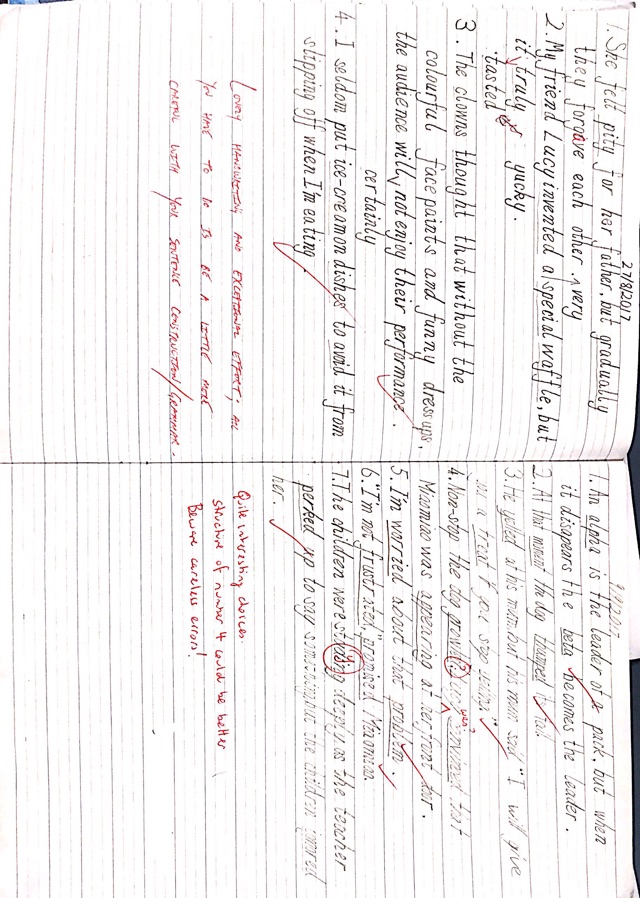 27/8/2017
1. She felt pity for her father, but gradually
they forgave each other.
very
2. My friend Lucy invented a special waffle, but
it truly yucky.
tasted
3. The clowns thought that without the
colourful face paints and funny dress ups,
the audience will not enjoy their performance.
certainly
4. I seldom put ice-cream on dishes to avoid it from
slipping off when I'm eating.
LOVELY HANDWRITING AND EXCEPTIONAL EFFORT, ALL
YOU HAVE TO DO IS BE A LITTLE MORE
CAREFUL WITH YOUR SENTENCE CONSTRUCTION/GRAMMAR.
2017
1. An alpha is the leader of a pack, but when
it disapears the beta becomes the leader.
2. At that moment the dog thumped it tail
3. He yelled at his mom but his mom said, "I will give
you a treat if you stop
4. Non-stop the dog growl that
was?
Miaomiao was appearing at her front door.
5. I'm worried about that problem.
6. "I'm not frustrated," promised Miaomiao.
7. The children were studing deeply as the teacher
y
perked up to say something but the children ignored
her.
Quite interesting choices.
Structure of number 4 could be better
Beware careless errors!